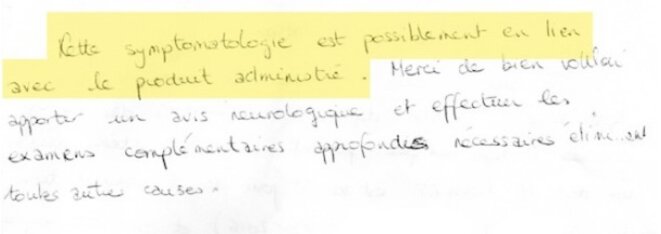 Cette symptomatologie est possiblement en lien
avec le produit administré. Merci de bien vouloir
apporter un avis neurologique et effectuer les
examens complémentaires approfondis nécessaires éliminant
toutes autres causes.